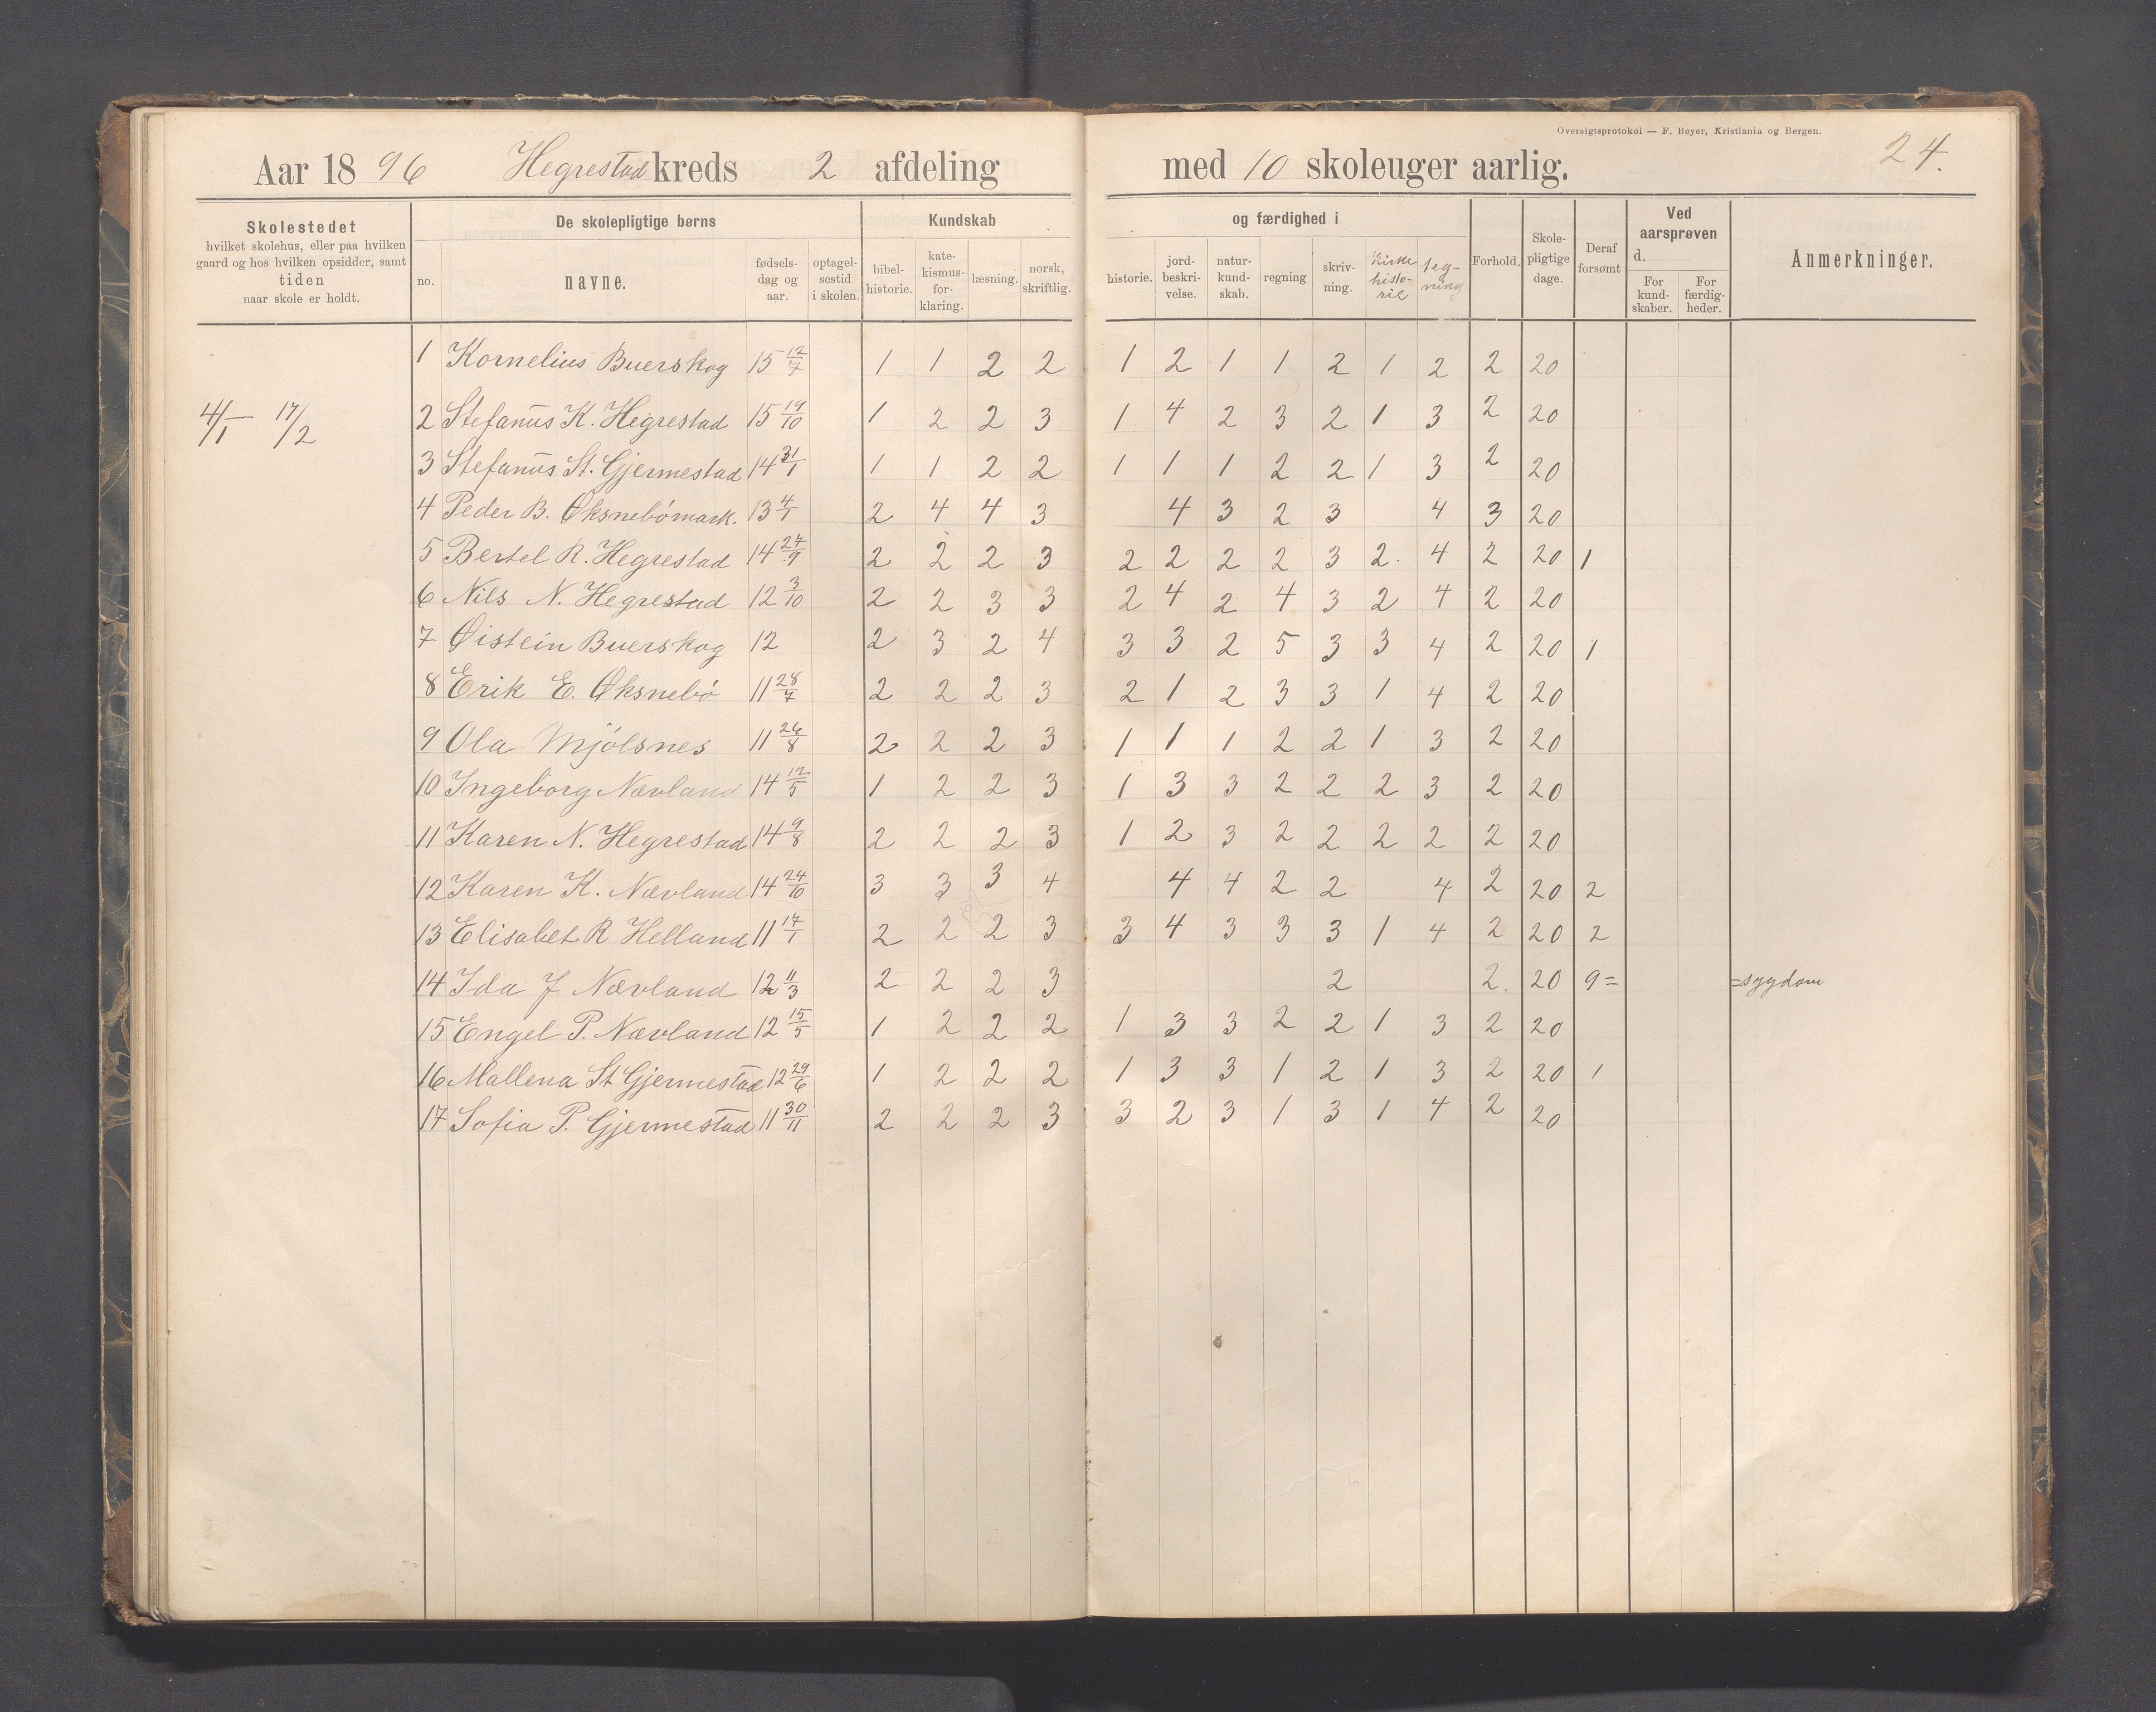 Oversigtsprotokol — F. Beyer, Kristiania og Bergen.
24.
Aar 1896 Hegrestad kreds 2 afdeling med 10 skoleuger aarlig.
Skolestedet
hvilket skolehus, eller paa hvilken
gaard og hos hvilken opsidder, samt
tiden
naar skole er holdt.
De skolepligtige børns
no.
navne.
fødsels-
dag og
aar.
optagel-
sestid
i skolen.
Kundskab
bibel-
historie.
kate-
kismus-
for-
klaring.
læsning.
norsk,
skriftlig.
og færdighed i
historie.
jord-
beskri-
velse.
natur-
kund-
skab.
regning
skriv-
ning.
Kirke
histo-
rie
teg-
ning
Forhold.
Skole-
pligtige
dage.
Deraf
forsømt
Ved
aarsprøven
d.
For
kund-
skaber.
For
færdig-
heder.
Anmerkninger.
4/1 — 17/2
1 Kornelius Buerskog 15 12/7 1 1 2 2 1 2 1 1 2 1 2 2 20
2 Stefanus K. Hegrestad 15 19/10 1 2 2 3 1 4 2 3 2 1 3 2 20
3 Stefanus St. Gjermestad 14 31/1 1 1 2 2 1 1 1 2 2 1 3 2 20
4 Peder B. Øksnebömark. 13 4/1 2 4 4 3 4 3 2 3 4 3 20
5 Bertel R. Hegrestad 14 24/9 2 2 2 3 2 2 2 2 3 2. 4 2 20 1
6 Nils N. Hegrestad 12 3/10 2 2 3 3 2 4 2 4 3 2 4 2 20
7 Øistein Buerskog 12 2 3 2 4 3 3 2 5 3 3 4 2 20 1
8 Erik E. Øksnebö 11 28/7 2 2 2 3 2 1 2 3 3 1 4 2 20
9 Ola Mjölsnes 11 26/8 2 2 2 3 1 1 1 2 2 1 3 2 20
10 Ingeborg Nævland 14 12/5 1 2 2 3 1 3 3 2 2 2 3 2 20
11 Karen N. Hegrestad 14 9/8 2 2 2 3 1 2 3 2 2 2 2 2 20
12 Karen K. Nævland 14 24/10 3 3 3 4 4 4 2 2 4 2 20 2
13 Elisabet R Helland 11 17/1 2 2 2 3 3 4 3 3 3 1 4 2 20 2
14 Ida J Nævland 12 11/3 2 2 2 3 2 2. 20 9= =sygdom
15 Engel P. Nævland 12 15/5 1 2 2 2 1 3 3 2 2 1 3 2 20
16 Mallena St Gjermestad 12 29/6 1 2 2 2 1 3 3 1 2 1 3 2 20 1
17 Sofia P. Gjermestad 11 30/11 2 2 2 3 3 2 3 1 3 1 4 2 20